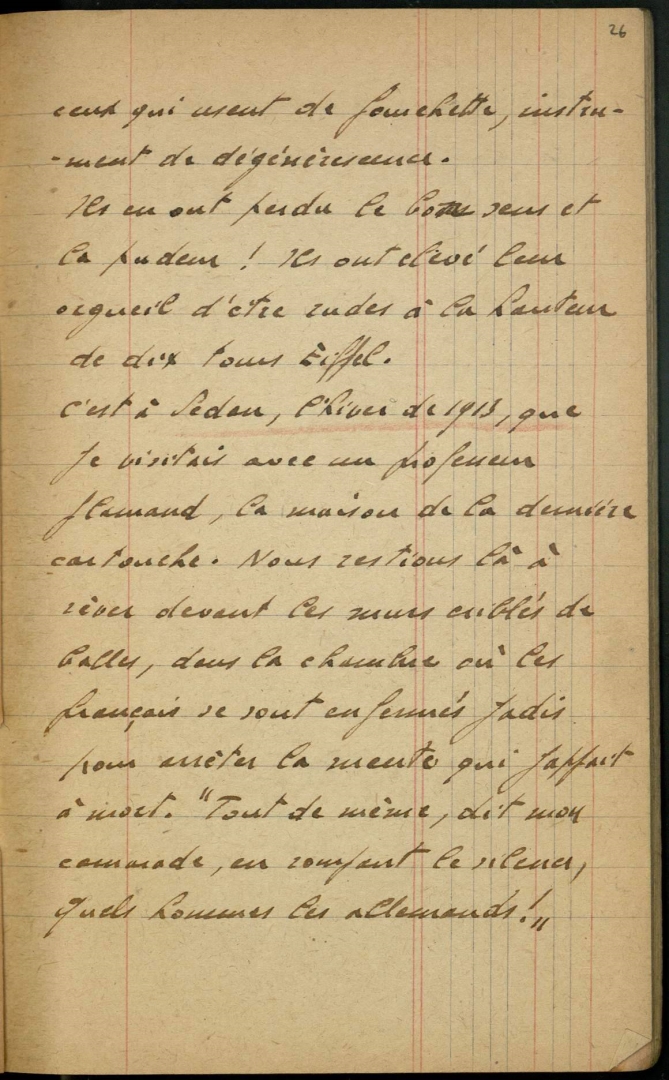 26
ceux qui usent de fourchette, instru-
-ment de dégénérescence.
Ils en ont perdu le bon sens et
la pudeur ! Ils ont élevé leur
orgueil d'être rudes à la hauteur
de dix tours Eiffel.
C'est à Sedan, l'hiver de 1913, que
je visitais avec un professeur
flamand, la maison de la dernière
cartouche. Nous restions là à
rêver devant les murs criblés de
balles, dans la chambre où les
français se sont enfermés jadis
pour arrêter la meute qui jappait
à mort. "Tout de même, dit mon
camarade, en rompant le silence,
quels hommes les allemands !„